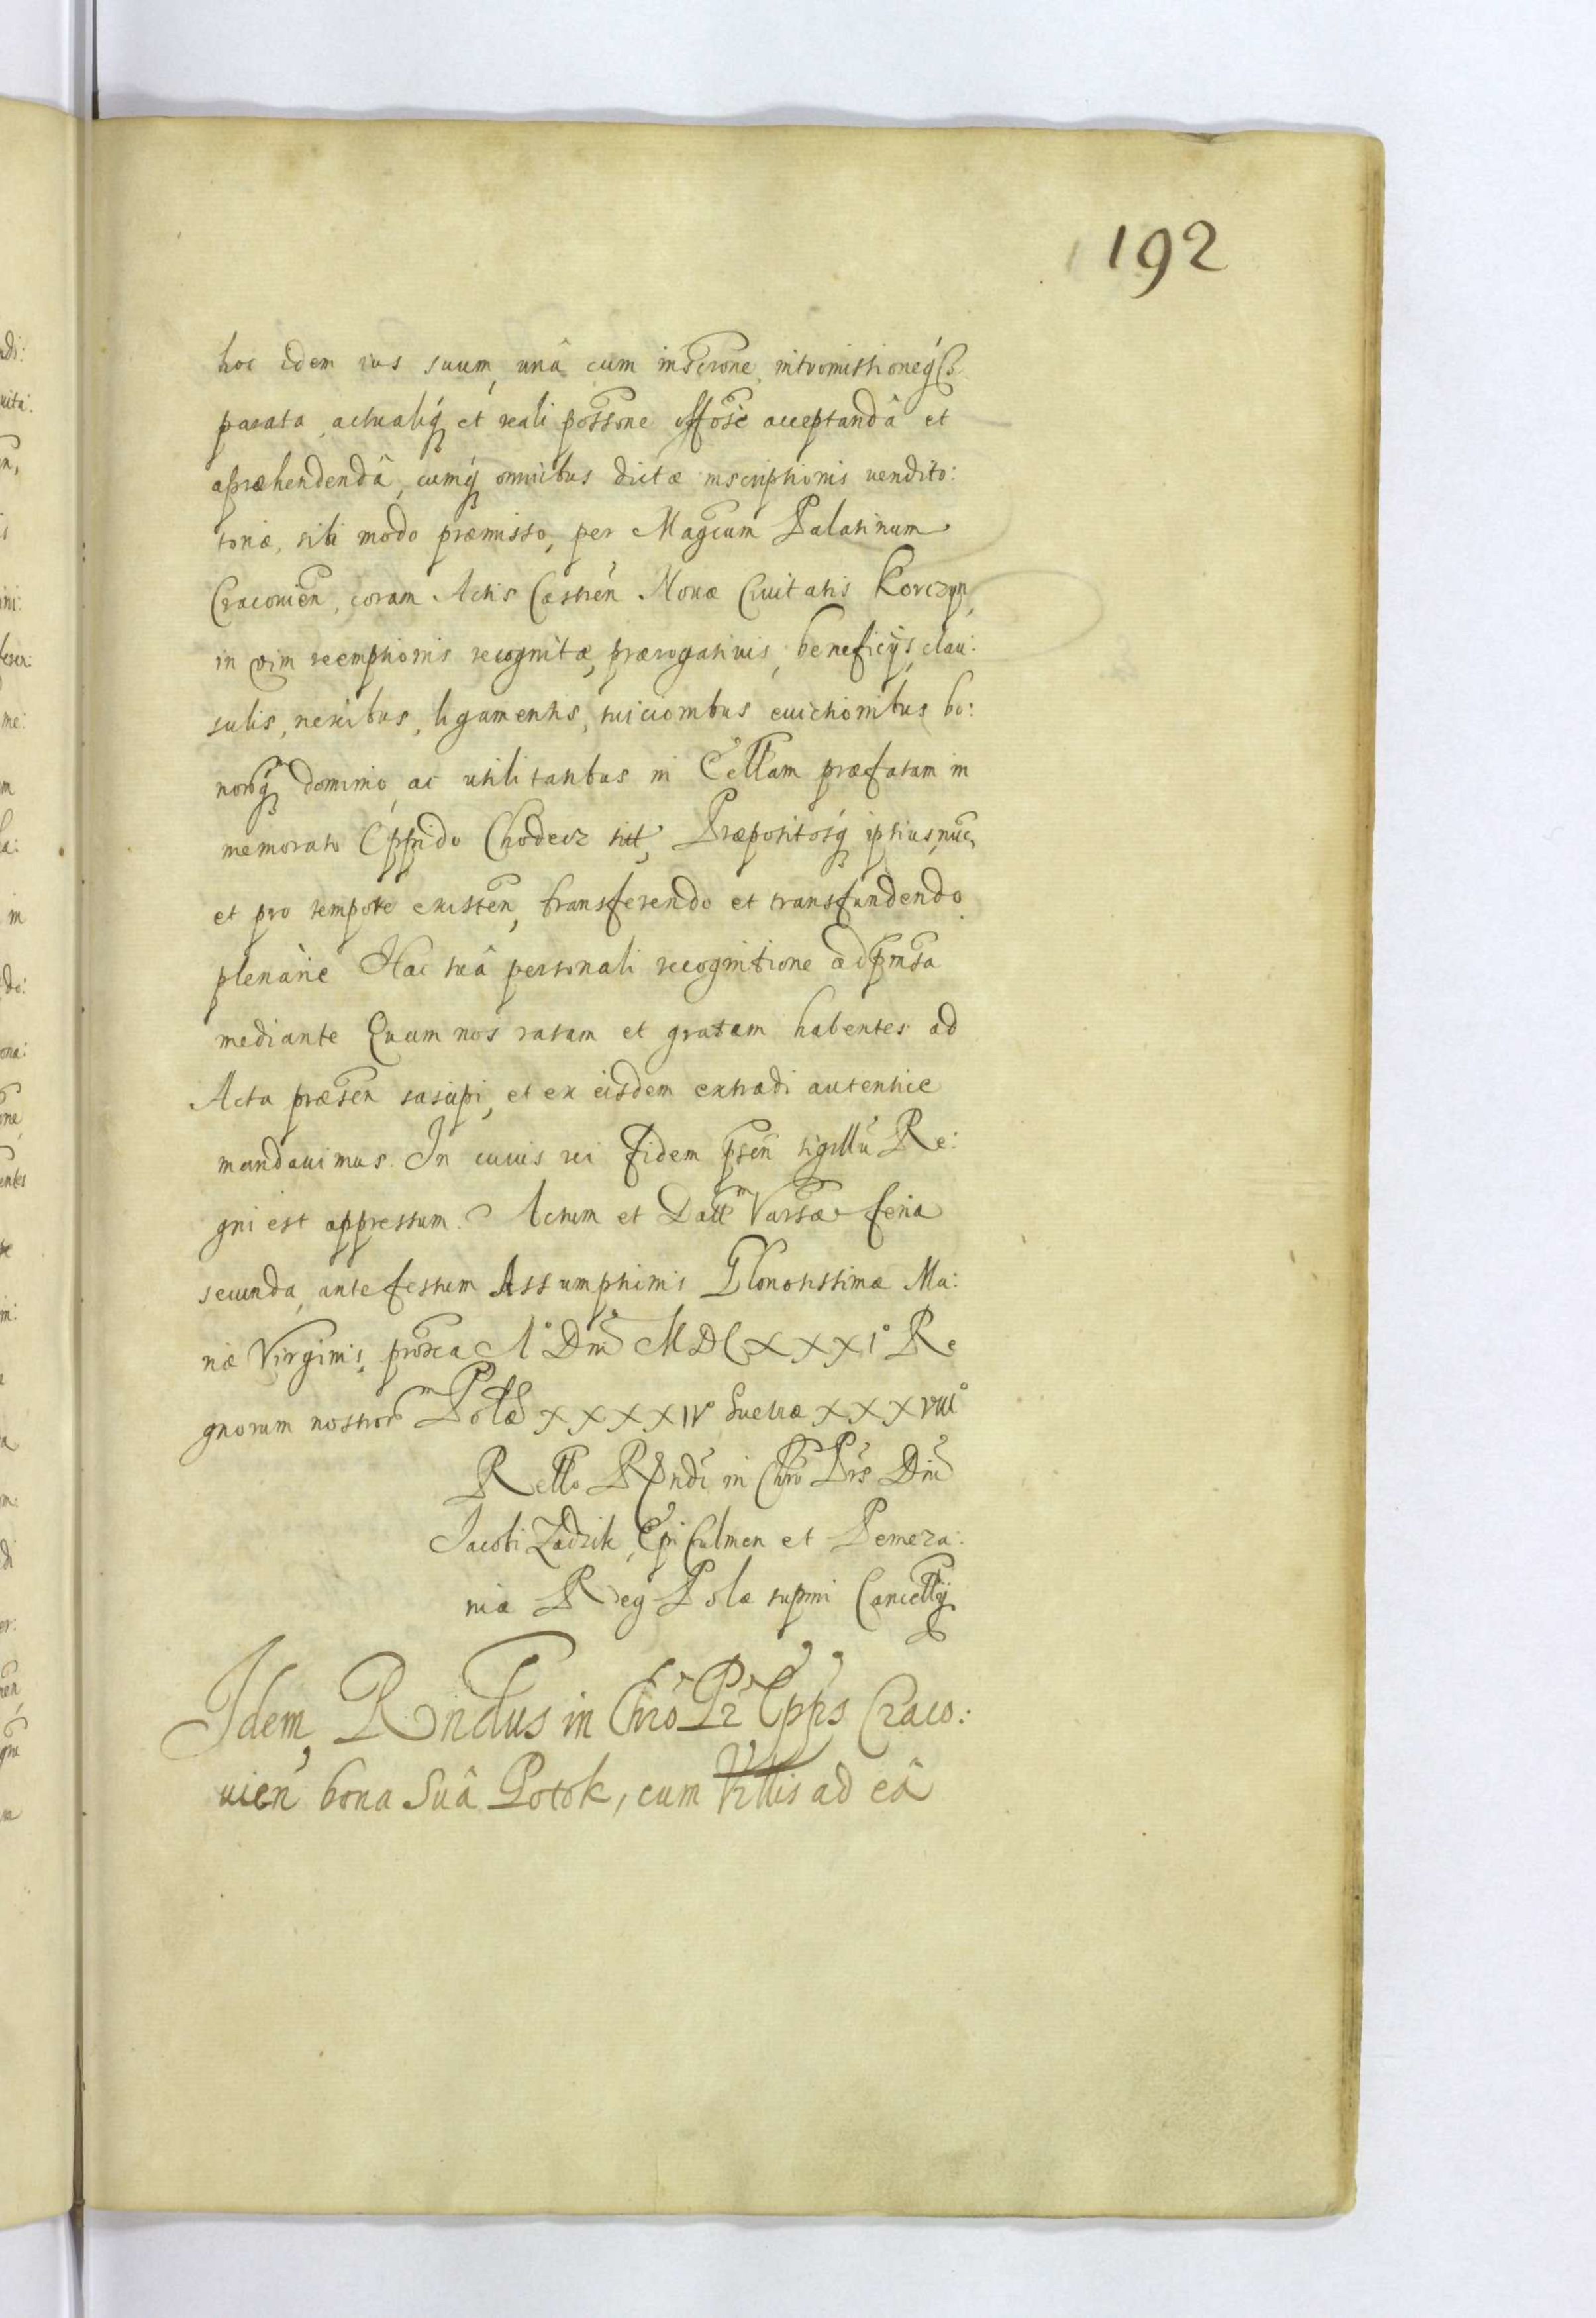 192
hoc idem ius suum, unâ cum inscrone, intromissioneq́
parata, actualiq́ et reali possone offose acceptandâ et
apræhendendâ, cumq́ omnibus dictæ inscriptionis vendito:
toriæ, sibi modo præmisso, per Magcum Palatinum
Cracouien, coram Actis Castren Nouæ Ciuitatis Korczyn,
in vim reemptionis recognitæ, prærogatiuis, beneficijs, clau:
sulis, nexibus, ligamentis, euictionibus bo:
norq́ dominio, ac utilitatibus in Ecllam præfatam in
memorato Oppido Chodecz sitt, Præpositosq́ ipsius, nuc,
et pro tempore existen, transferendo et transfundendo
plenarie Hac suâ personali recognitione ad pmsa
mediante Quam nos ratam et gratam habentes ad
Acta præsen suscipi, et ex eisdem extradi autentice
mandauimus. In cuius rei fidem psen sigillu Re:
gni est appressum. Actum et Datt Varsæ feria
secunda, ante festum Assumptionis Gloriosissimæ Ma:
riæ Virginis, proxa A° Dni MDCXXXI° Re
gnorum nostror Polæ XXXXIV° Suetiæ XXXVIII°
Rello Rndi in Chro Pris Dni
Jacobi Zadzik, Epi Culmen et Pomeza:
niæ Reg Polæ supmi Cancellij
Idem, Rndus in Chro Pr Epps Craco:
uien bona Suâ Potok, cum Villis ad eâ